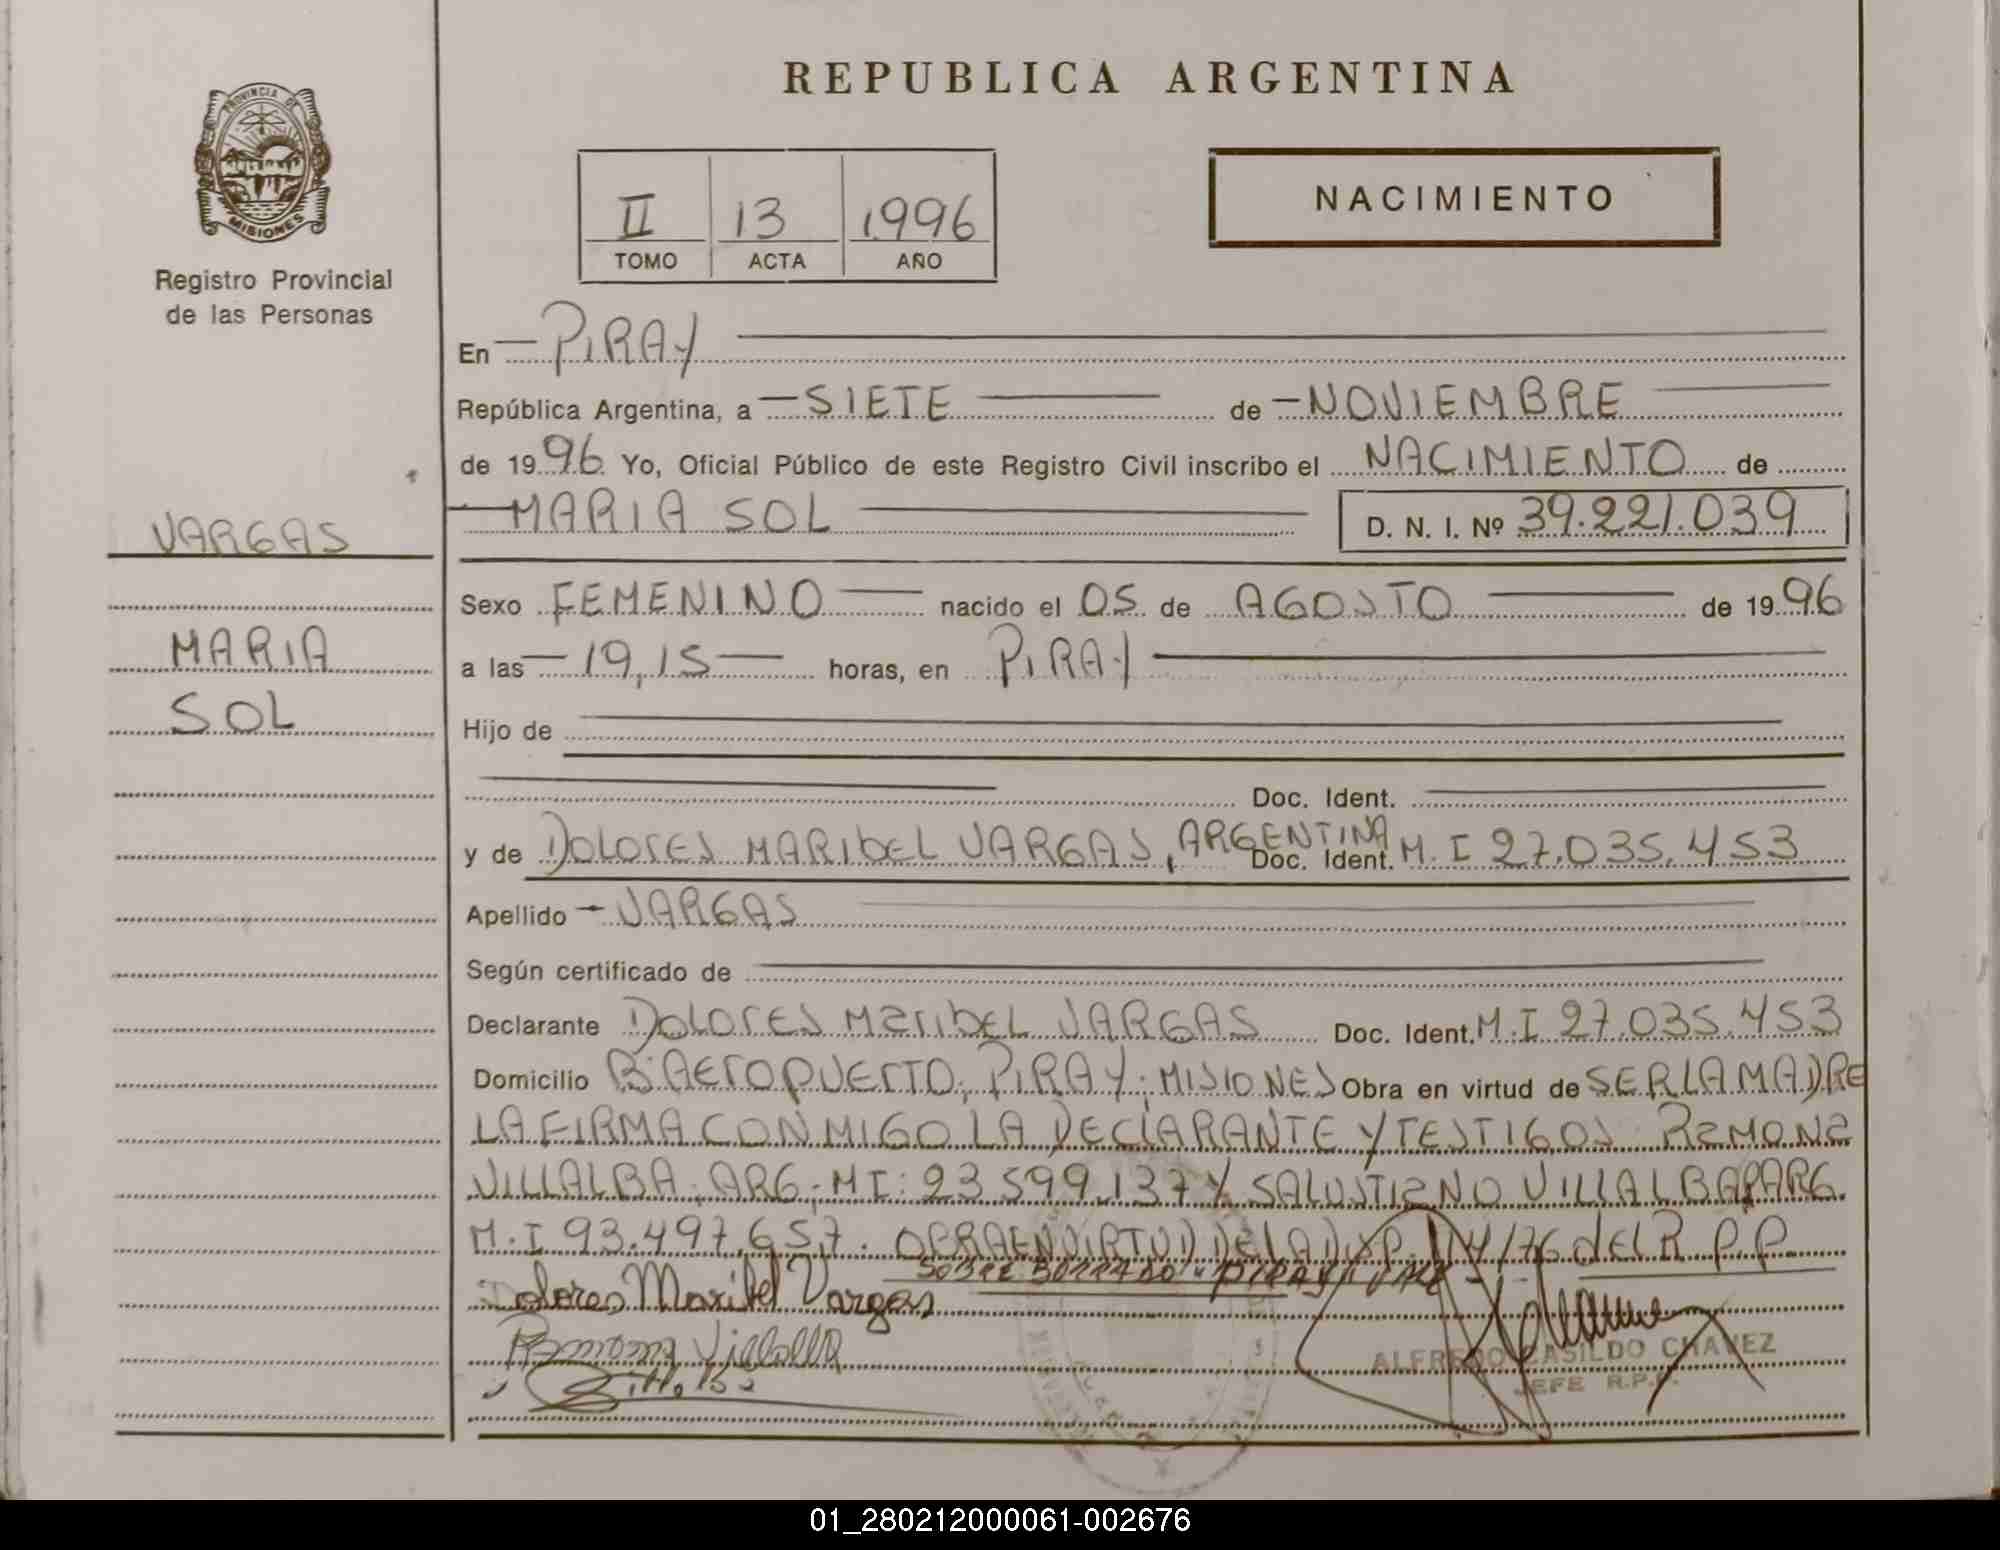 REPUBLICA ARGENTINA
PROVINCIA DE
MISIONES
Registro Provincial
de las Personas
II 13 1.996
TOMO ACTA AÑO
NACIMIENTO
En PIRAY
República Argentina, a SIETE de NOVIEMBRE
de 1996 Yo, Oficial Público de este Registro Civil inscribo el NACIMIENTO de
MARIA SOL D. N. I. Nº 39.221.039
VARGAS
MARIA
SOL
Sexo FEMENINO nacido el 05 de AGOSTO de 1996
a las 19,15 horas, en PIRAY
Hijo de
Doc. Ident.
y de DOLORES MARIBEL VARGAS, ARGENTINA Doc. Ident. M. I 27.035.453
Apellido VARGAS
Según certificado de
Declarante DOLORES MARIBEL VARGAS Doc. Ident. M. I 27.035.453
Domicilio Bº AEROPUERTO, PIRAY. MISIONES Obra en virtud de SER LA MADRE
LA FIRMA CONMIGO LA DECLARANTE Y TESTIGOS RAMONA
VILLALBA. ARG. MI: 23.599.137 Y SALUSTIANO VILLALBA PARG.
M. I 93.497.657. OBRA EN VIRTUD DE LA DISP. 114/76 del R.P.P
SOBRE BORRADO "PIRAY" VALE
Dolores Maribel Vargas
Ramona Villalba
ALFREDO CASILDO CHAVEZ
JEFE R.P.P.
01_280212000061-002676